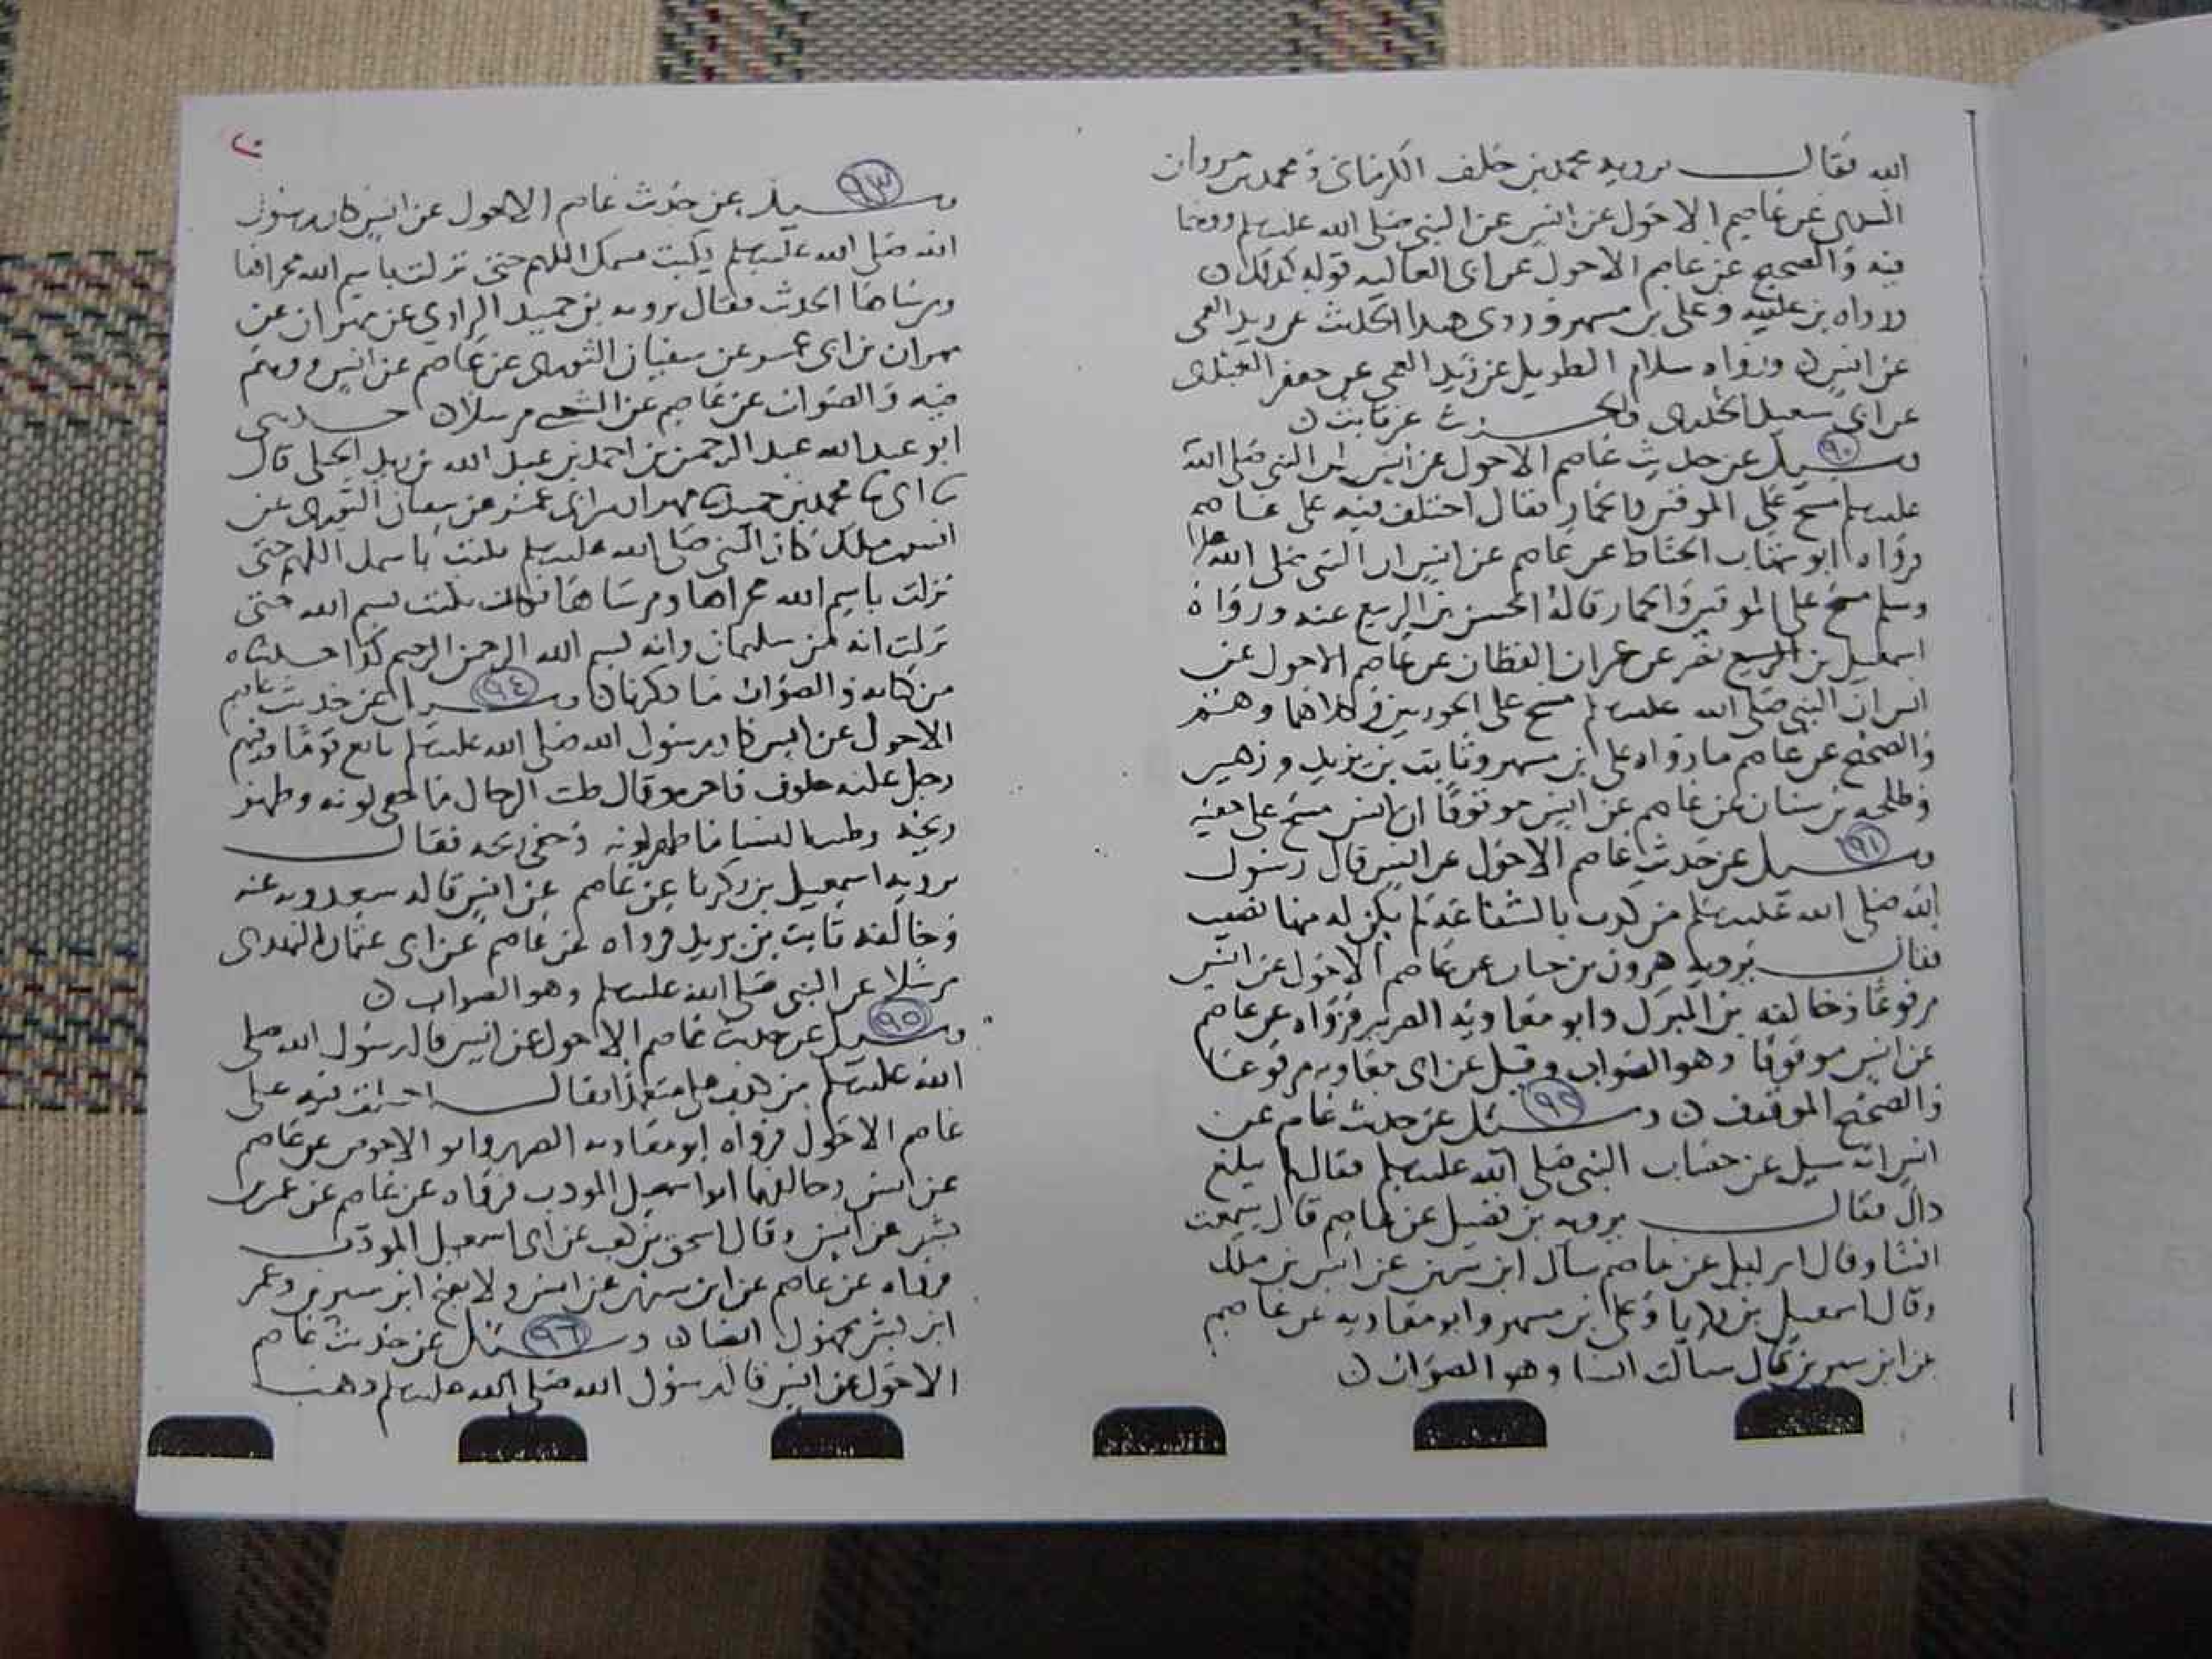 الله فقال يرويه محمد بن خلف الكرماني ومحمد بن مروان
السدي عن عاصم الاحول عن انس عن النبي صلى الله عليه وسلم ووهما
فيه والصحيح عن عاصم الاحول عن ابي العاليه قوله كذلك ن
رواه بن عليه وعلى بن مسهر وروى هذا الحديث عن زيد العمى
عن انس ن ورواه سلام الطويل عن زيد العمى عن جعفر العبدى
عن ابي سعيد الخدرى عن ثابت ن
٩٠
وسيل عن حديث عاصم الاحول عن انس ان النبي صلى الله
عليه وسلم مسح على الموقين والخمار فقال اختلف فيه على عاصم
فرواه ابو شهاب الحناط عن عاصم عن انس ان النبي صلى الله عليه
وسلم مسح على الموقين والخمار قاله الحسن بن الربيع عنه ورواه
اسمعيل بن عن عمران القطان عن عاصم الاحول عن
انس ان النبي صلى الله عليه وسلم مسح على الجوربين وكلاهما وهم
والصحيح عن عاصم ما رواه على بن مسهر وثابت بن يزيد وزهير
وطلحه بن سنان عن عاصم عن انس موقوفا ان انس مسح على خفيه
٩١
وسيل عن حديث عاصم الاحول عن انس قال رسول
الله صلى الله عليه وسلم من كذب بالشفاعة لم يكن له فيها نصيب
فقال يرويه هرون بن حيان عن عاصم الاحول عن انس
مرفوعا وخالفه بن المبرك وابو معاوية الضرير فرواه عن عاصم
عن انس موقوفا وهو الصواب وقيل عن ابي معاويه مرفوعا
والصحيح الموقوف ن ٩٢ وسئل عن حديث عاصم عن
انس انه سيل عن خضاب النبي صلى الله عليه وسلم فقال لم يبلغ
ذاك فقال يرويه بن فضيل عن عاصم قال سمعت
انسا وقال اسرايل عن عاصم سال ابن سيرين عن انس بن ملك
وقال اسمعيل بن زكريا وعلى بن مسهر وابو معاويه عن عاصم
عن ابن سيرين قال سالت انسا وهو الصواب ن
٢٠
٩٣
وسيل عن حديث عاصم الاحول عن انس كان رسول
الله صلى الله عليه وسلم يكتب بسمك اللهم حتى نزلت باسم الله مجراها
ومرساها الحديث فقال يرويه بن حميد الرازي عن مهران عن
مهران بن ابي عمر عن سفيان الثورى عن عاصم عن انس ووهم
فيه والصواب عن عاصم عن الشعبي مرسلا ن حدثني
ابو عبد الله عبد الرحمن بن احمد بن عبد الله بن يزيد الختلى قال
نا ابي نا محمد بن حميد نا مهران بن ابي عمر عن سفيان الثورى عن
انس بن ملك كان النبي صلى الله عليه وسلم يكتب باسمك اللهم حتى
نزلت باسم الله مجراها ومرساها فكان يكتب بسم الله حتى
نزلت انه من سليمان وانه بسم الله الرحمن الرحيم كذا
من كتابه والصواب ما ذكرناه ن ٩٤ وسيل عن حديث عاصم
الاحول عن انس كان رسول الله صلى الله عليه وسلم بايع قوما وفيهم
رجل عليه خلوق وقال طيب الرجال ما خفى لونه وظهر
ريحه وطيب النسا ما ظهر لونه وخفى ريحه فقال
يرويه اسمعيل بن زكريا عن عاصم عن انس قاله سعدويه عنه
وخالفه ثابت بن يزيد فرواه عن عاصم عن ابي عثمان النهدى
مرسلا عن النبي صلى الله عليه وسلم وهو الصواب ن
٩٥
وسيل عن حديث عاصم الاحول عن انس قال رسول الله صلى
الله عليه وسلم من كذب على متعمدا فقال اختلف فيه على
عاصم الاحول فرواه ابو معاويه الضرير وابو الاحوص عن عاصم
عن انس وخالفهما ابو اسمعيل المودب فرواه عن عاصم عن عمر بن
بشر عن انس وقال اسحق بن كعب عن ابي اسمعيل المودب
فرواه عن عاصم عن ابن سيرين عن انس ولا يصح ابن سيرين وعمر
ابن بشر مجهول ايضا ن ٩٦ وسئل عن حديث عاصم
الاحول عن انس قال رسول الله صلى الله عليه وسلم وهب